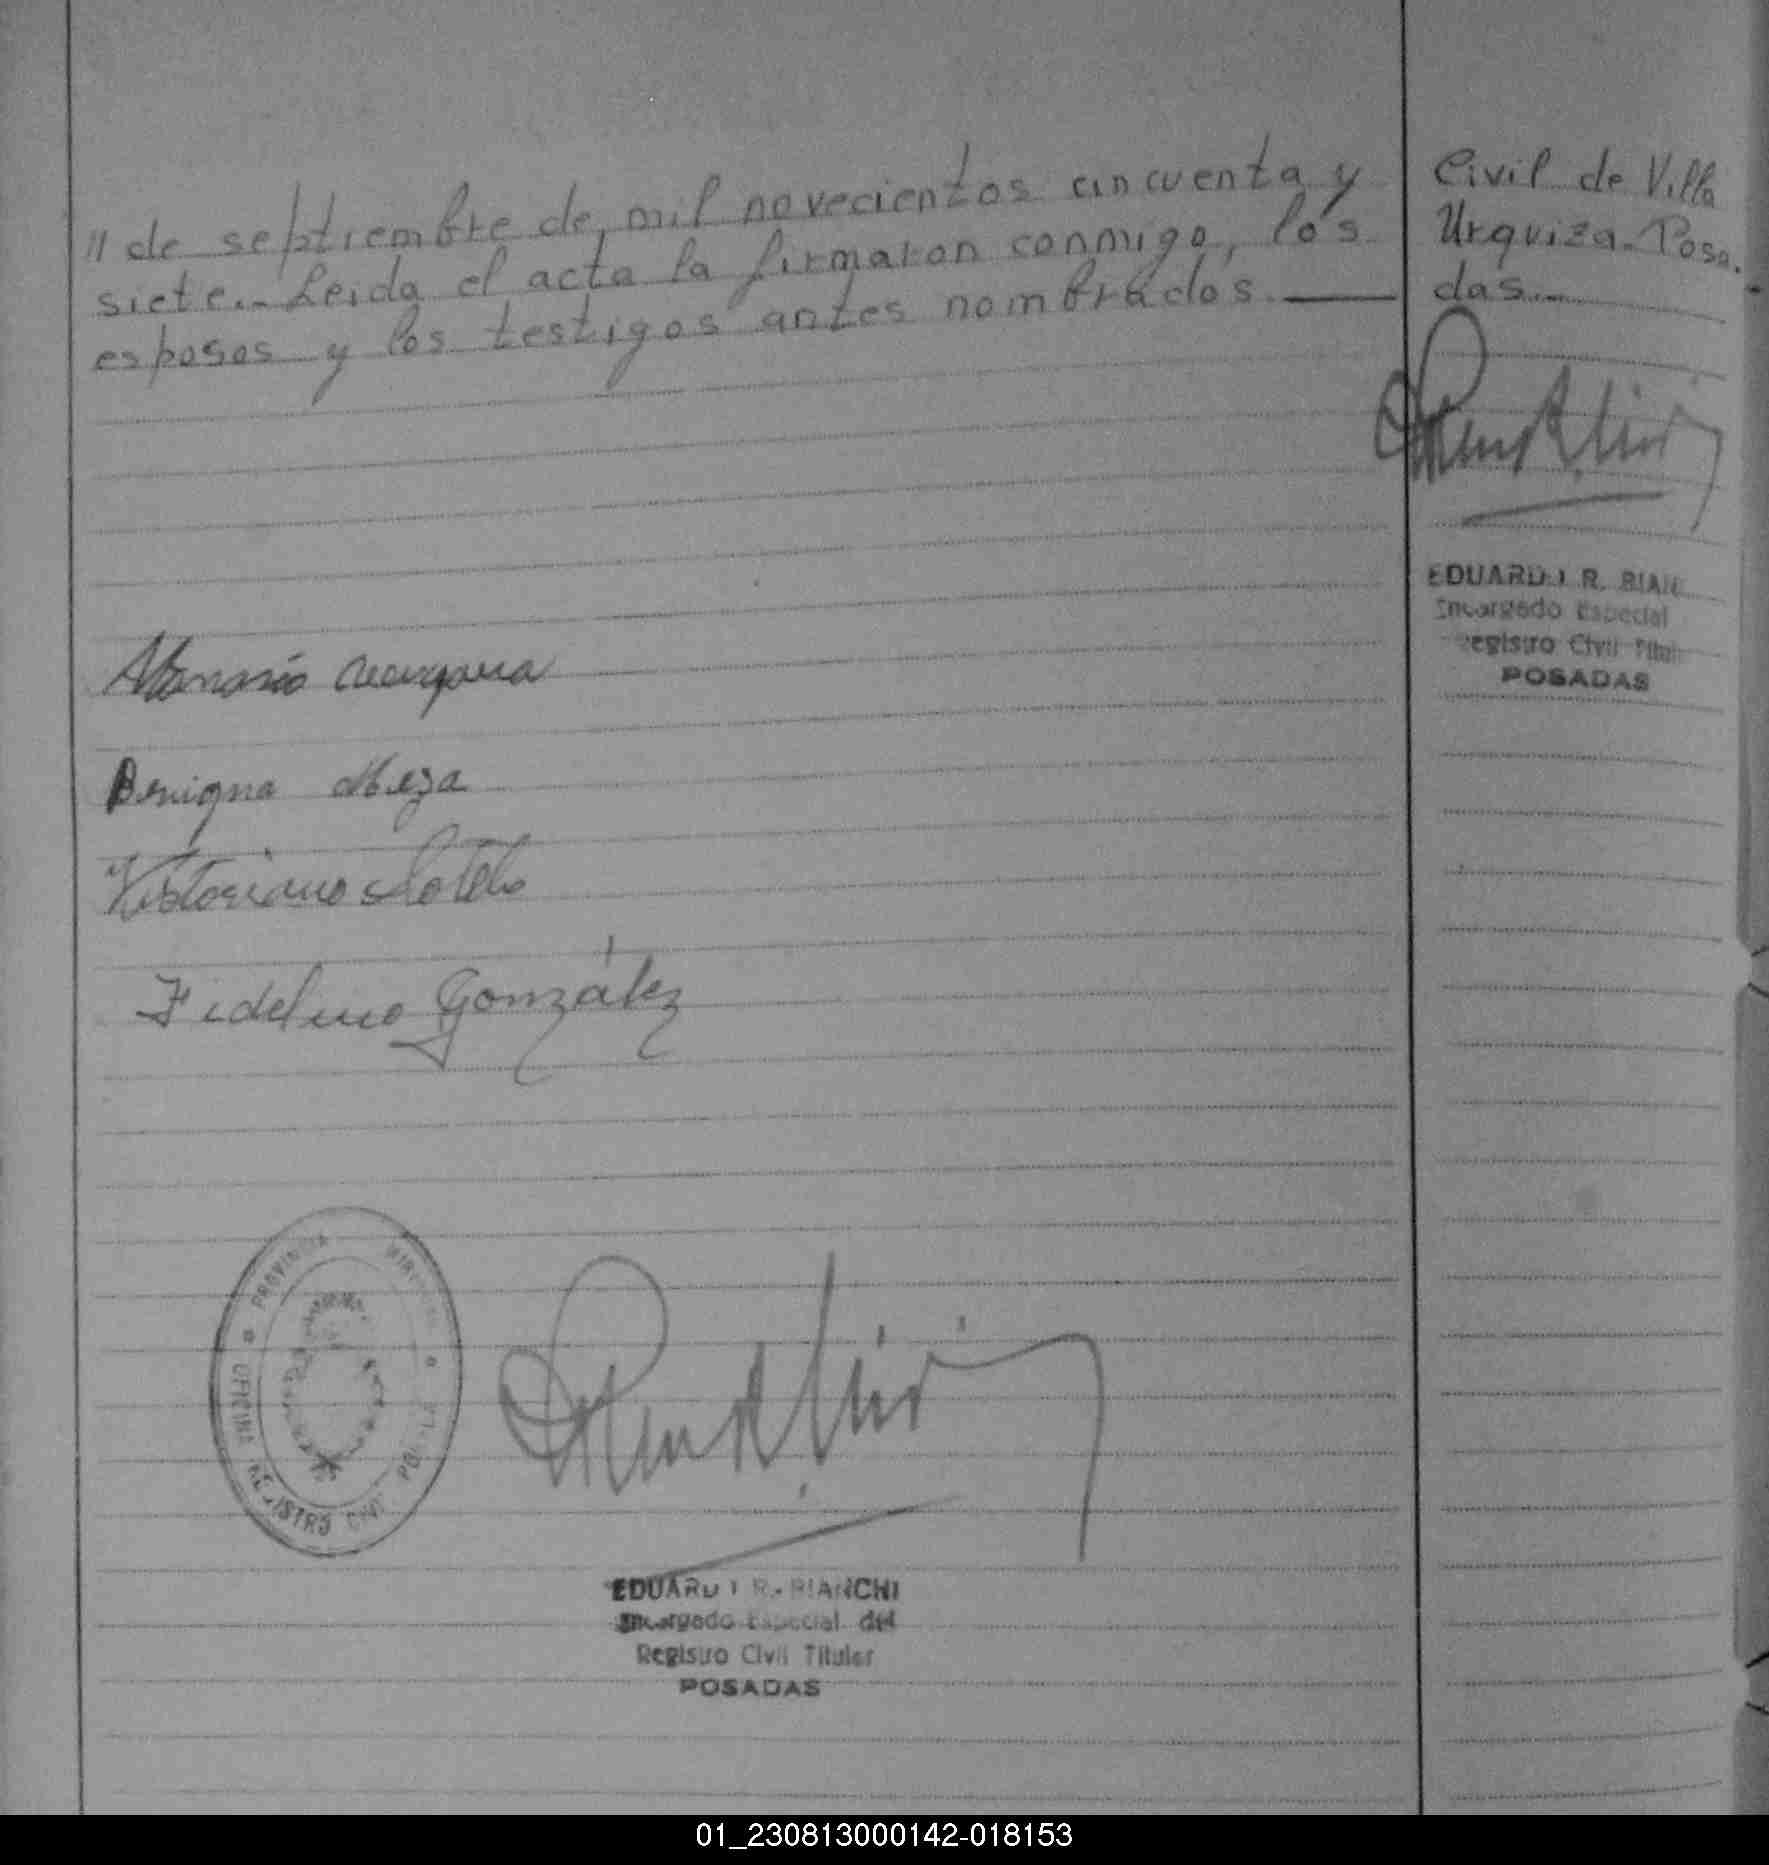 " de septiembre de mil novecientos cincuenta y
siete.. Leida el acta la firmaron conmigo, los
esposos y los testigos antes nombrados
Civil de Villa
Urquiza. Posa.
das..
EDUARDO R. BIAN
Encargado Especial
Registro Civil Titul
POSADAS
Atanasio
Benigna Meza
Victoriano Sotelo
Fidelino González
PROVINCIA
OFICINA REGISTRO CIVIL
EDUARDO R. BIANCHI
Encargado Especial del
Registro Civil Titular
POSADAS
01_230813000142-018153